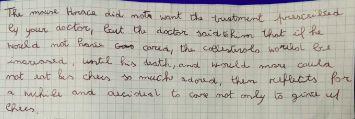 The mouse Horace did not want the treatment prescribed
by your doctor, but the doctor said to him that if he
would not have cared, the cholesterols would be
increased, until his death, and would more could
not eat his chees so much adored, then reflects for
a while and decided to care not only to give up
chees.